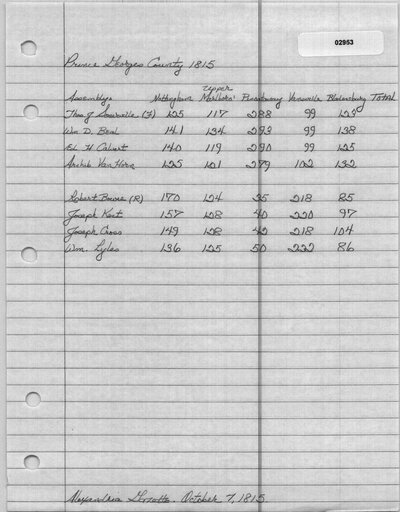 02953
Prince Georges County 1815
Assembly Nottingham Upper Marlboro' Piscataway Vansville Bladensburg TOTAL
Thos. J (F) 125 117 288 99 123
Wm D. Beal 141 134 293 99 138
Ed. H Calvert 140 119 290 99 125
Archib Van Horn 125 121 279 102 132
Robert Bowie (R) 170 124 35 218 85
Joseph Kent 157 128 40 220 97
Joseph Cross 149 128 42 218 104
Wm. Lyles 136 125 50 222 86
Alexandria Gazette. October 7, 1815.